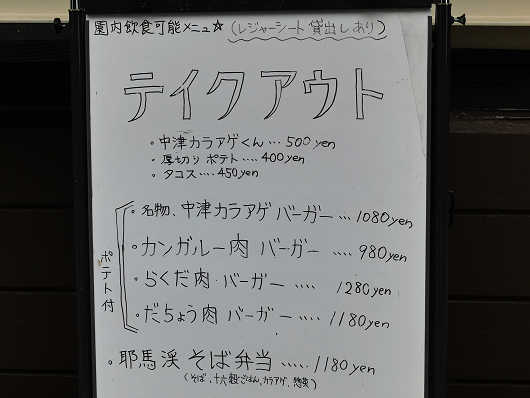 園内飲食可能メニュー☆ (レジャーシート 貸出しあり)
テイクアウト
・中津カラアゲくん… 500yen
・厚切りポテト…. 400yen
・タコス…. 450yen
・名物、中津カラアゲ バーガー… 1080yen
・カンガルー肉 バーガー …. 980yen
・らくだ肉・バーガー …. 1280yen
・だちょう肉 バーガー …. 1180yen
ポテト付
・耶馬渓 そば弁当 ….. 1180yen
(そば、十六穀ごはん、カラアゲ、惣菜)